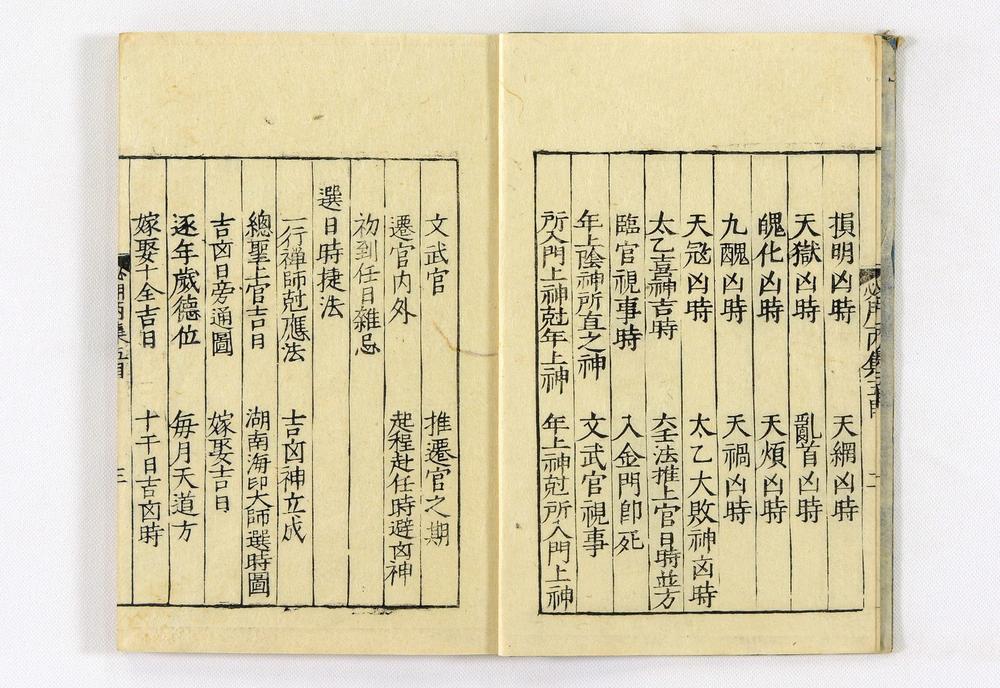 損明凶時 天網凶時
天獄凶時 亂首凶時
魄化凶時 天煩凶時
九醜凶時 天禍凶時
天寇凶時 太乙大敗神㐫時
太乙喜神吉時 六壬法推上官日時並方
臨官視事時 入金門卽死
年上陰神所直之神 文武官視事
所入門上神尅年上神 年上神尅所入門上神
文武官 推遷官之期
遷官内外 起程赴任時避㐫神
初到任日雜忌
選日時捷法
一行禪師尅應法 吉㐫神立成
總聖上官吉日 湖南海印大師選時圖
吉㐫日旁通圖 嫁娶吉日
逐年歲德位 毎月天道方
嫁娶十全吉日 十干日吉㐫時